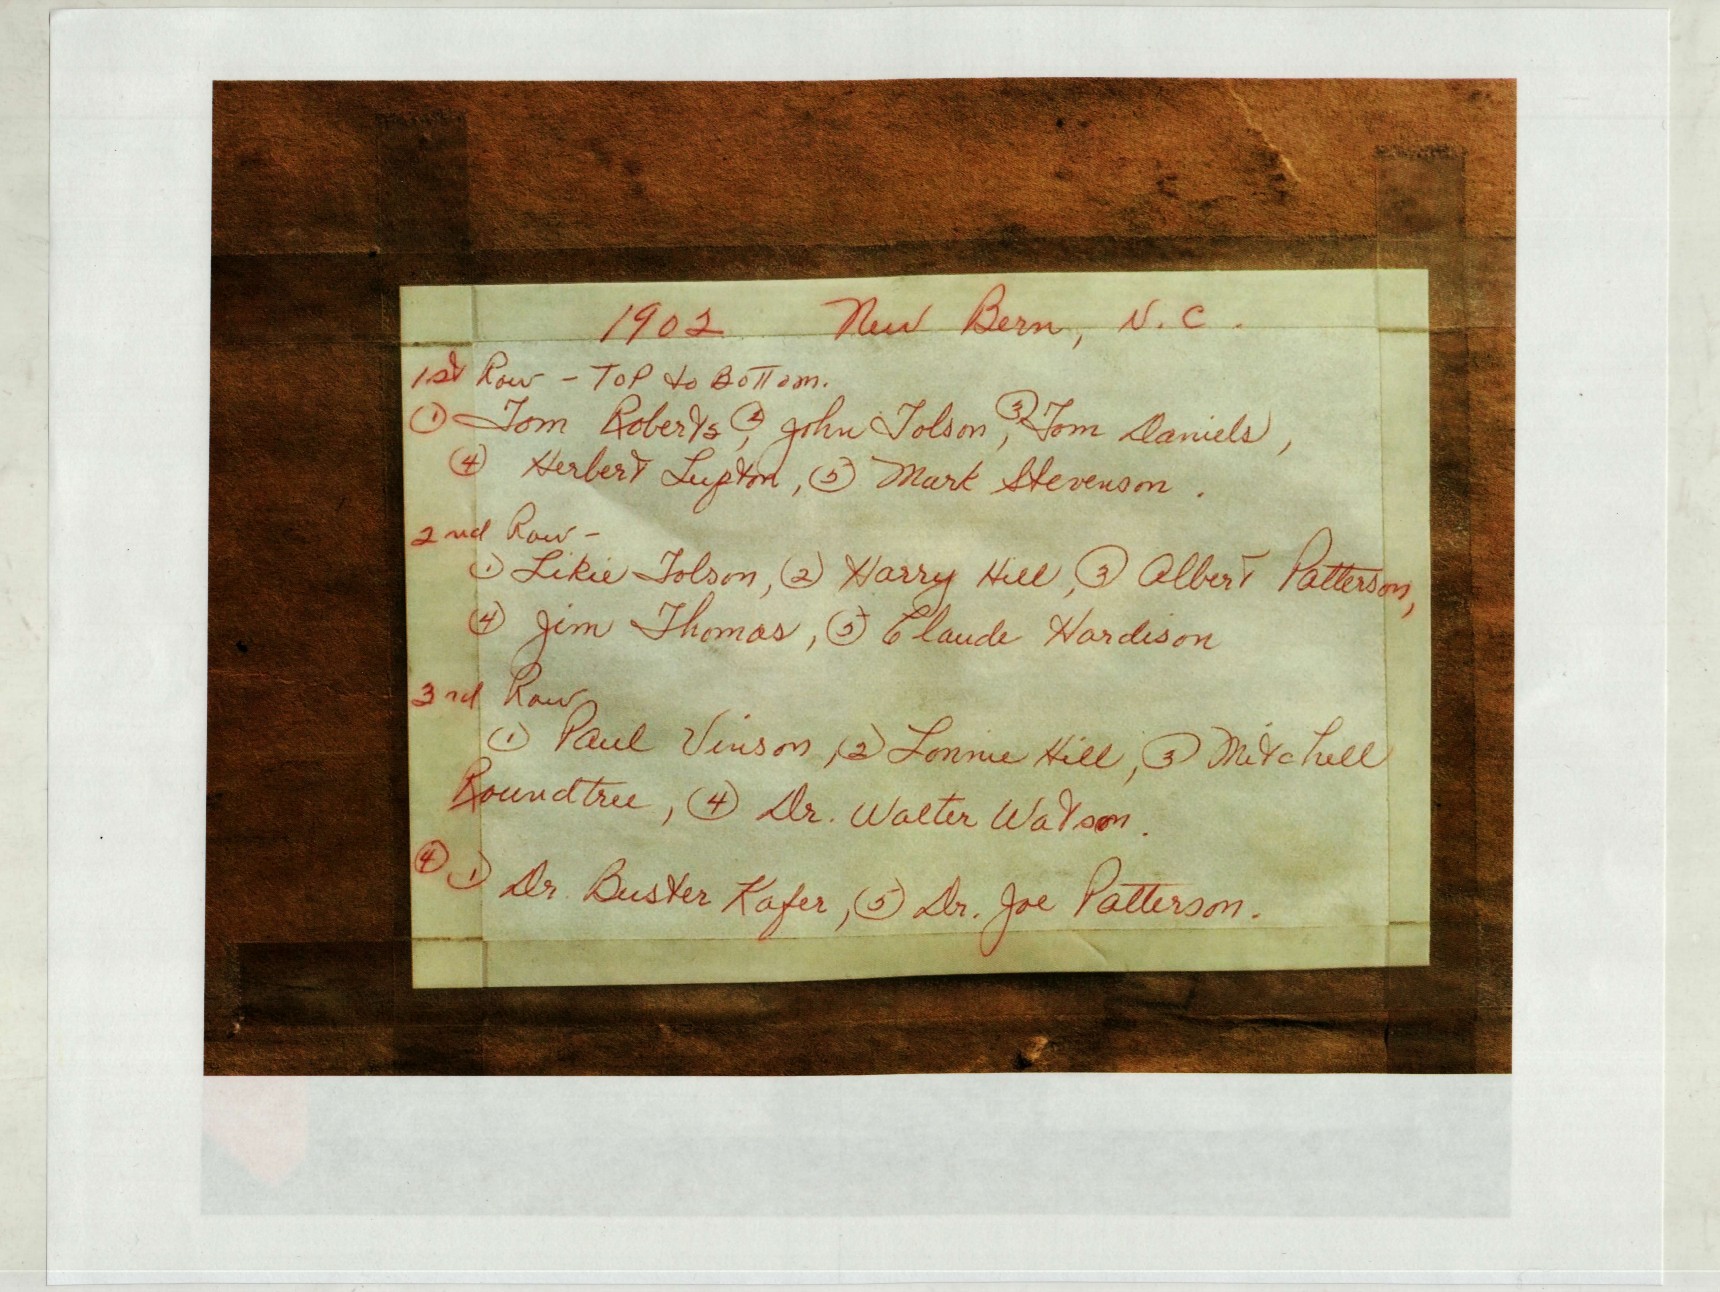 1902 New Bern, N.C.
1st Row - Top to Bottom.
① Tom Roberts, ② John Tolson, ③ Tom Daniels,
④ Herbert Lupton, ⑤ Mark Stevenson.
2nd Row -
① Likie Tolson, ② Harry Hill, ③ Albert Patterson,
④ Jim Thomas, ⑤ Claude Hardison
3rd Row
① Paul Vinson, ② Lonnie Hill, ③ Mitchell
Roundtree, ④ Dr. Walter Watson.
④ ① Dr. Buster Kafer, ⑤ Dr. Joe Patterson.